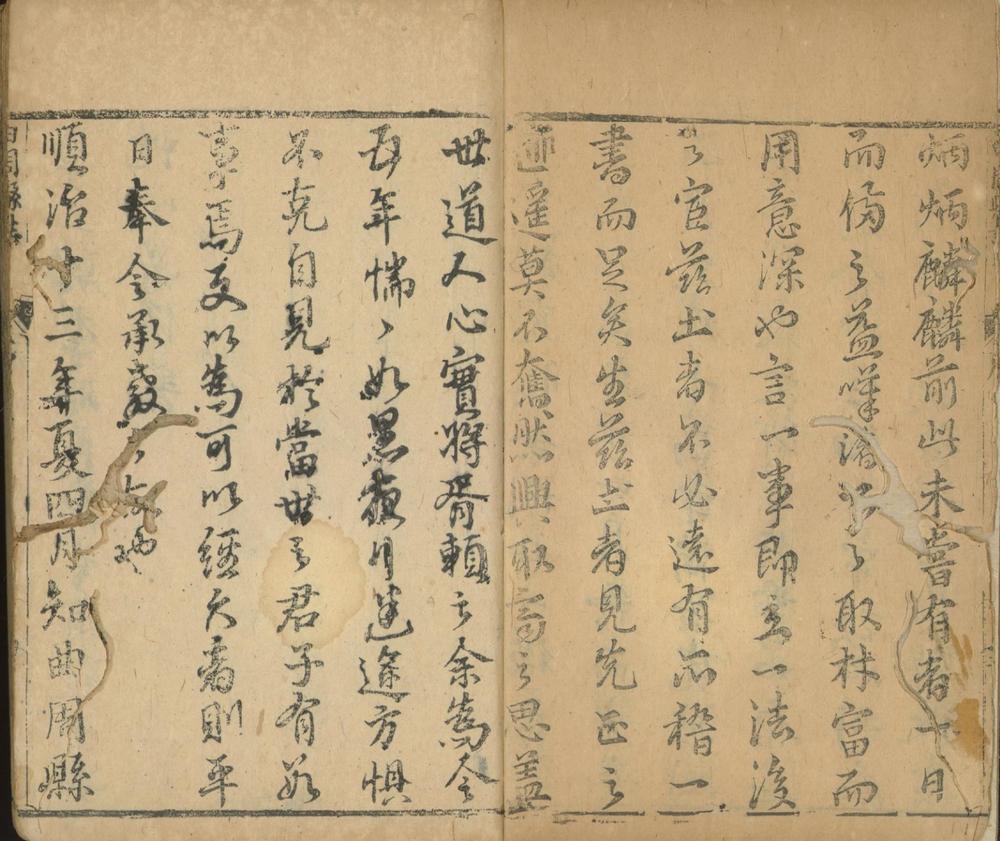 炳炳麟麟前此未嘗有者一日
而俻之益嘆取材富而
用意深也言一事即立一法後
之宦茲土者不必遠有所稽一
書而足矣生茲土者見先正之
迹遥莫不奮然興取高之思蓋
世道人心實將胥賴之余嵩令
每年惴惴如黑夜行迷途方惧
不克自見於當世之君子有如
事焉更以為可以經久者則平
日奉令承教之也
順治十三年夏四月知曲周縣
曲周縣志